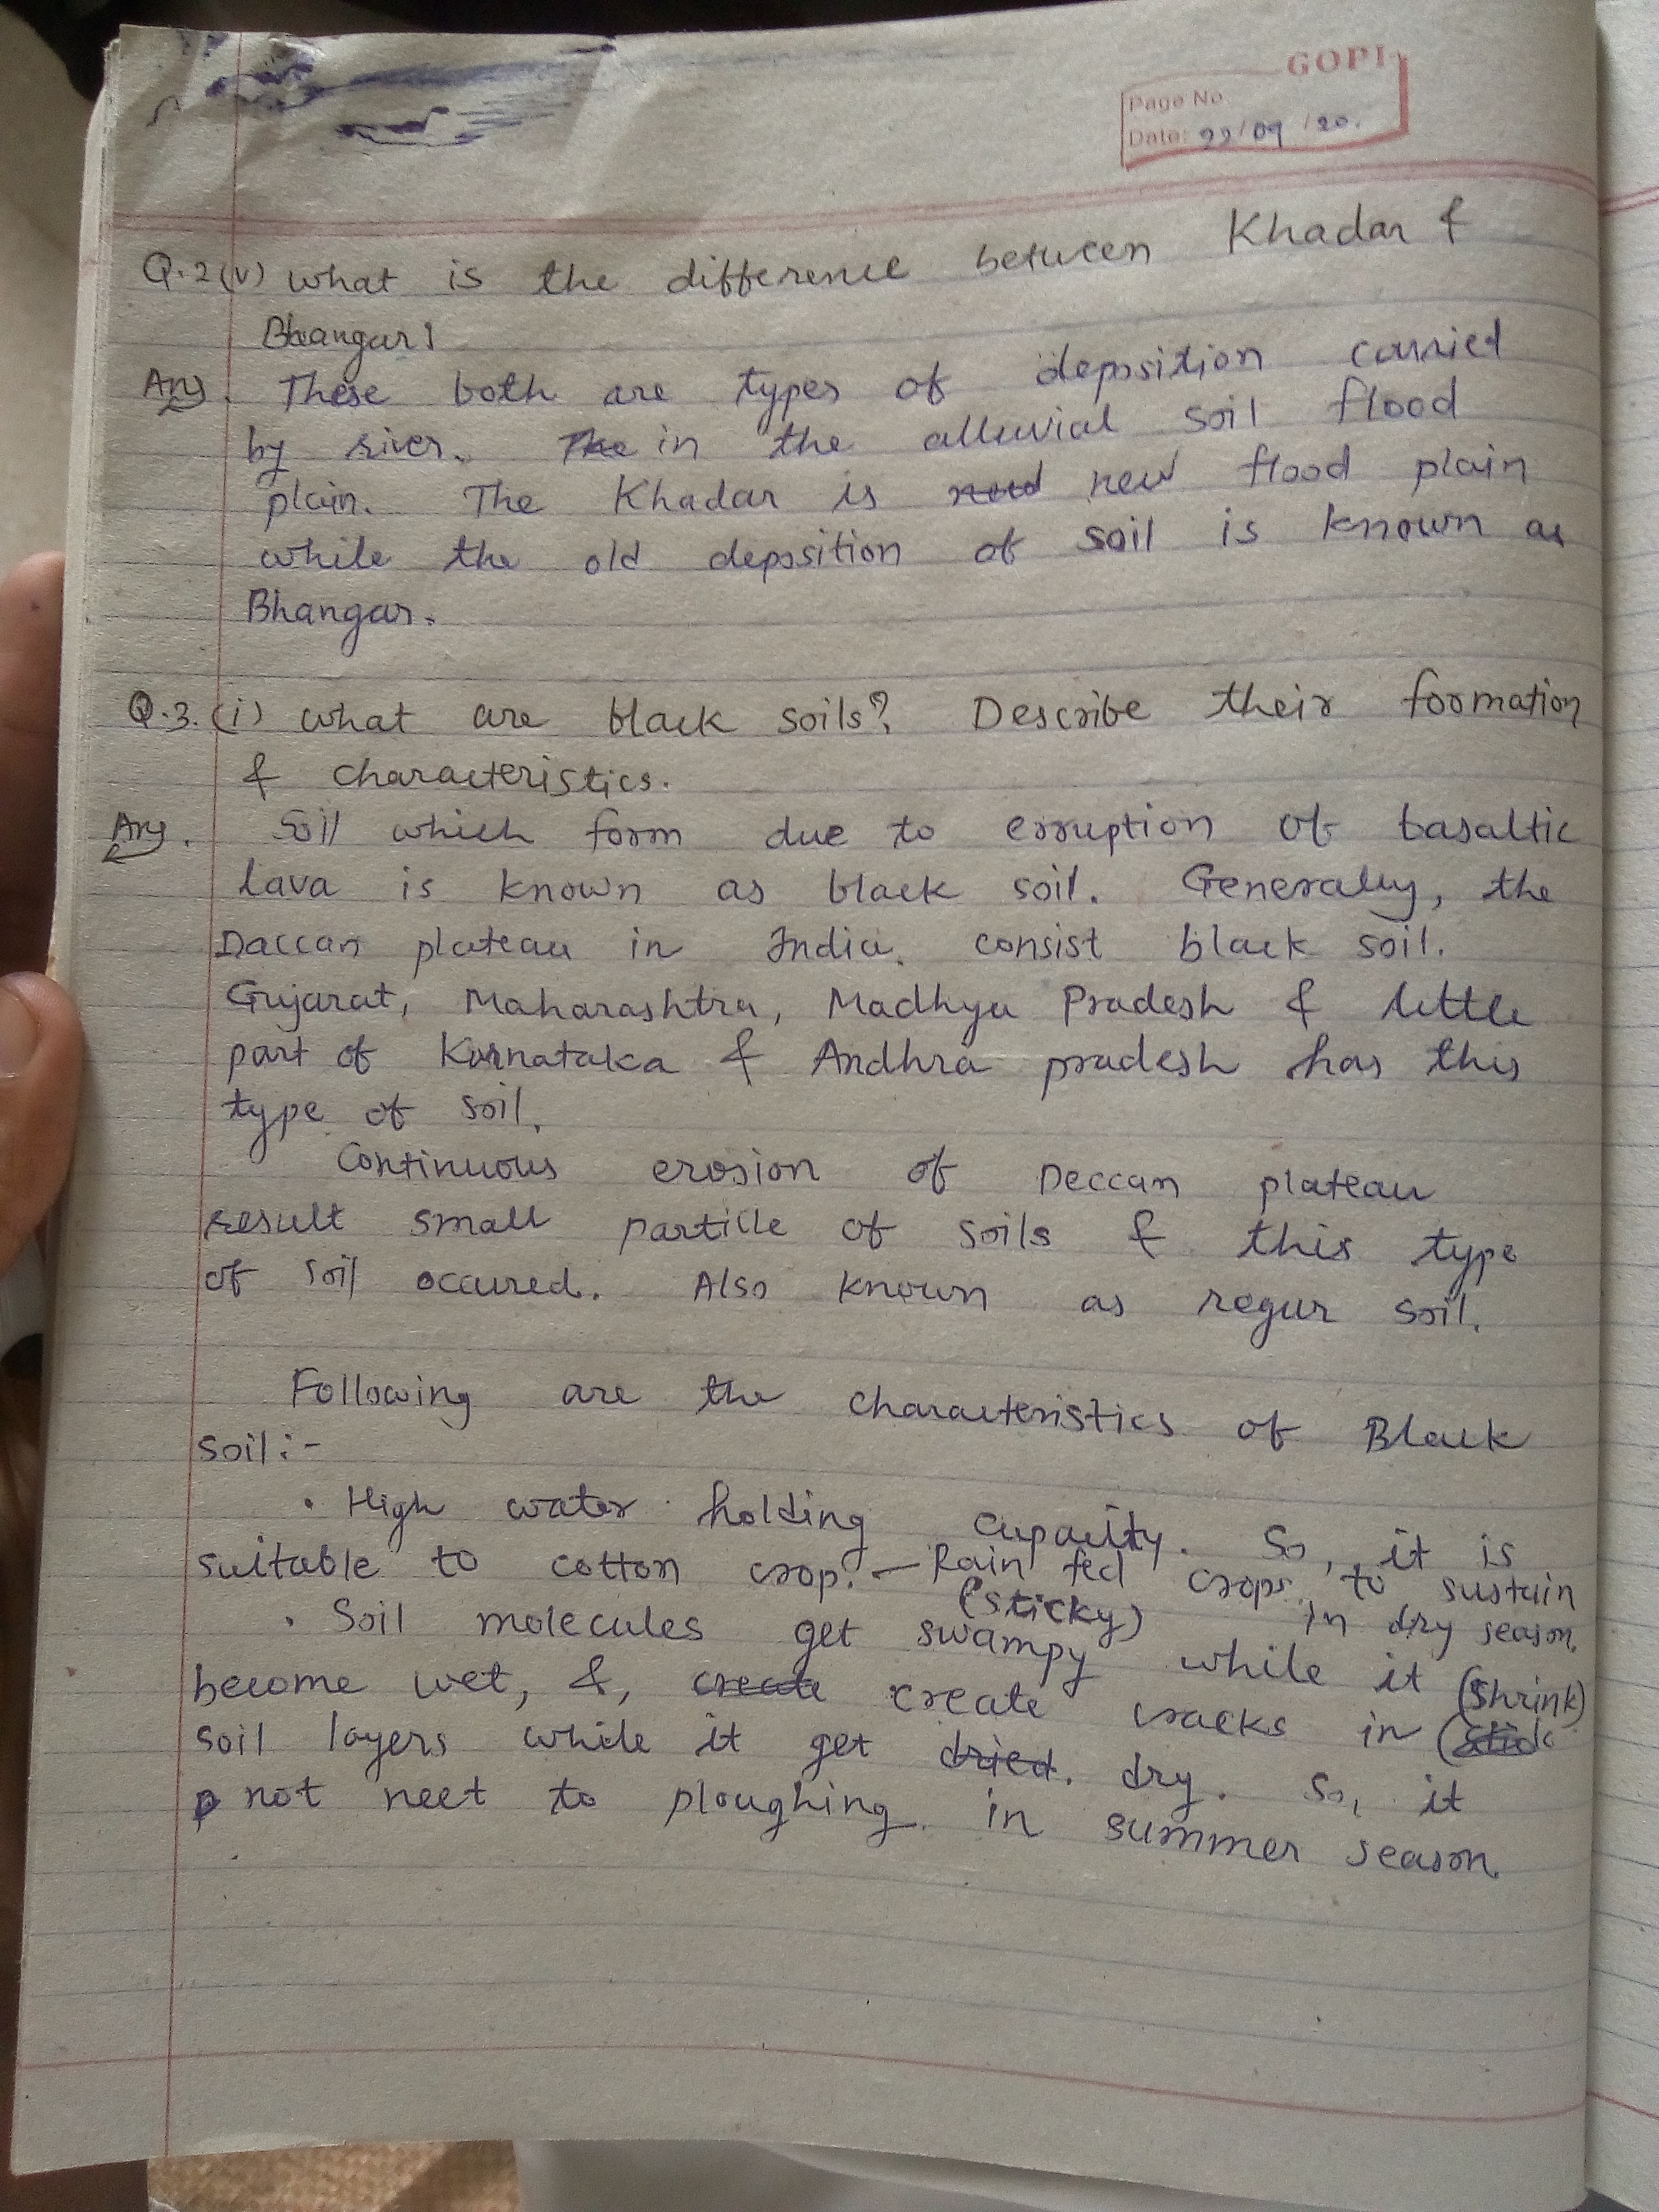 GOPI
Page No.
Date: 22/09/20.
Q.2(v) What is the difference between Khadar &
Bhangar?
Ans. These both are types of deposition carried
by river. The in the alluvial soil flood
plain. The Khadar is new flood plain
while the old deposition of soil is known as
Bhangar.
Q.3. (i) What are black soils? Describe their formation
& characteristics.
Ans. Soil which form due to erruption of basaltic
lava is known as black soil. Generally, the
Daccan plateau in India. consist black soil.
Gujarat, Maharashtra, Madhya Pradesh & little
part of Karnataka & Andhra pradesh has this
type of soil.
Continuous erosion of Deccan plateau
result small particle of soils & this type
of soil occured. Also known as regur soil.
Following are the characteristics of Black
soil:-
• High water holding capacity. So, it is
suitable to cotton crop. – Rain fed crops to sustain
(sticky) in dry season.
• Soil molecules get swampy while it
become wet, &, create create cracks in (shrink)
soil layers while it get dried. dry. So, it
not neet to ploughing in summer season.